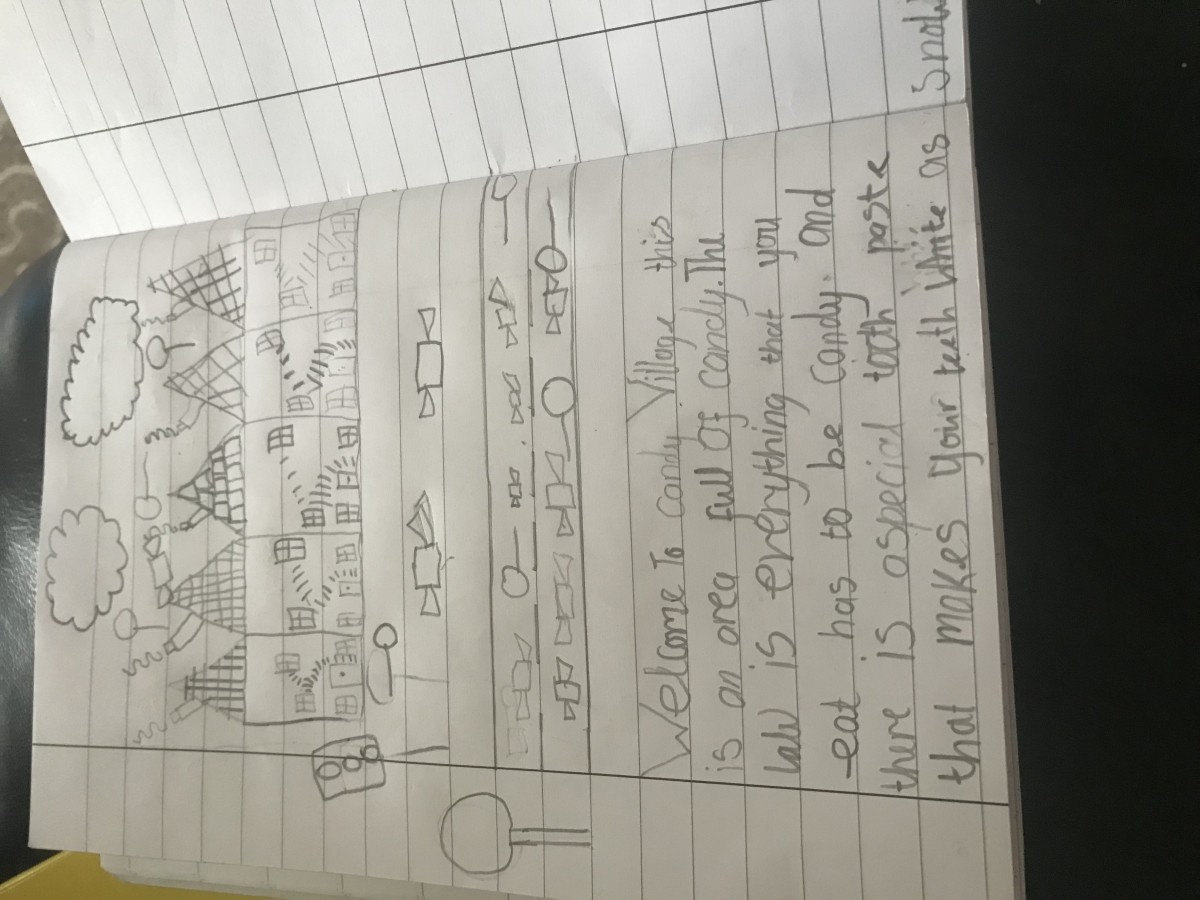 Welcome To candy Village this
is an area full Of candy. The
law is everything that you
eat has to be candy. and
there is aspecial tooth paste
that makes your teeth White as Snow